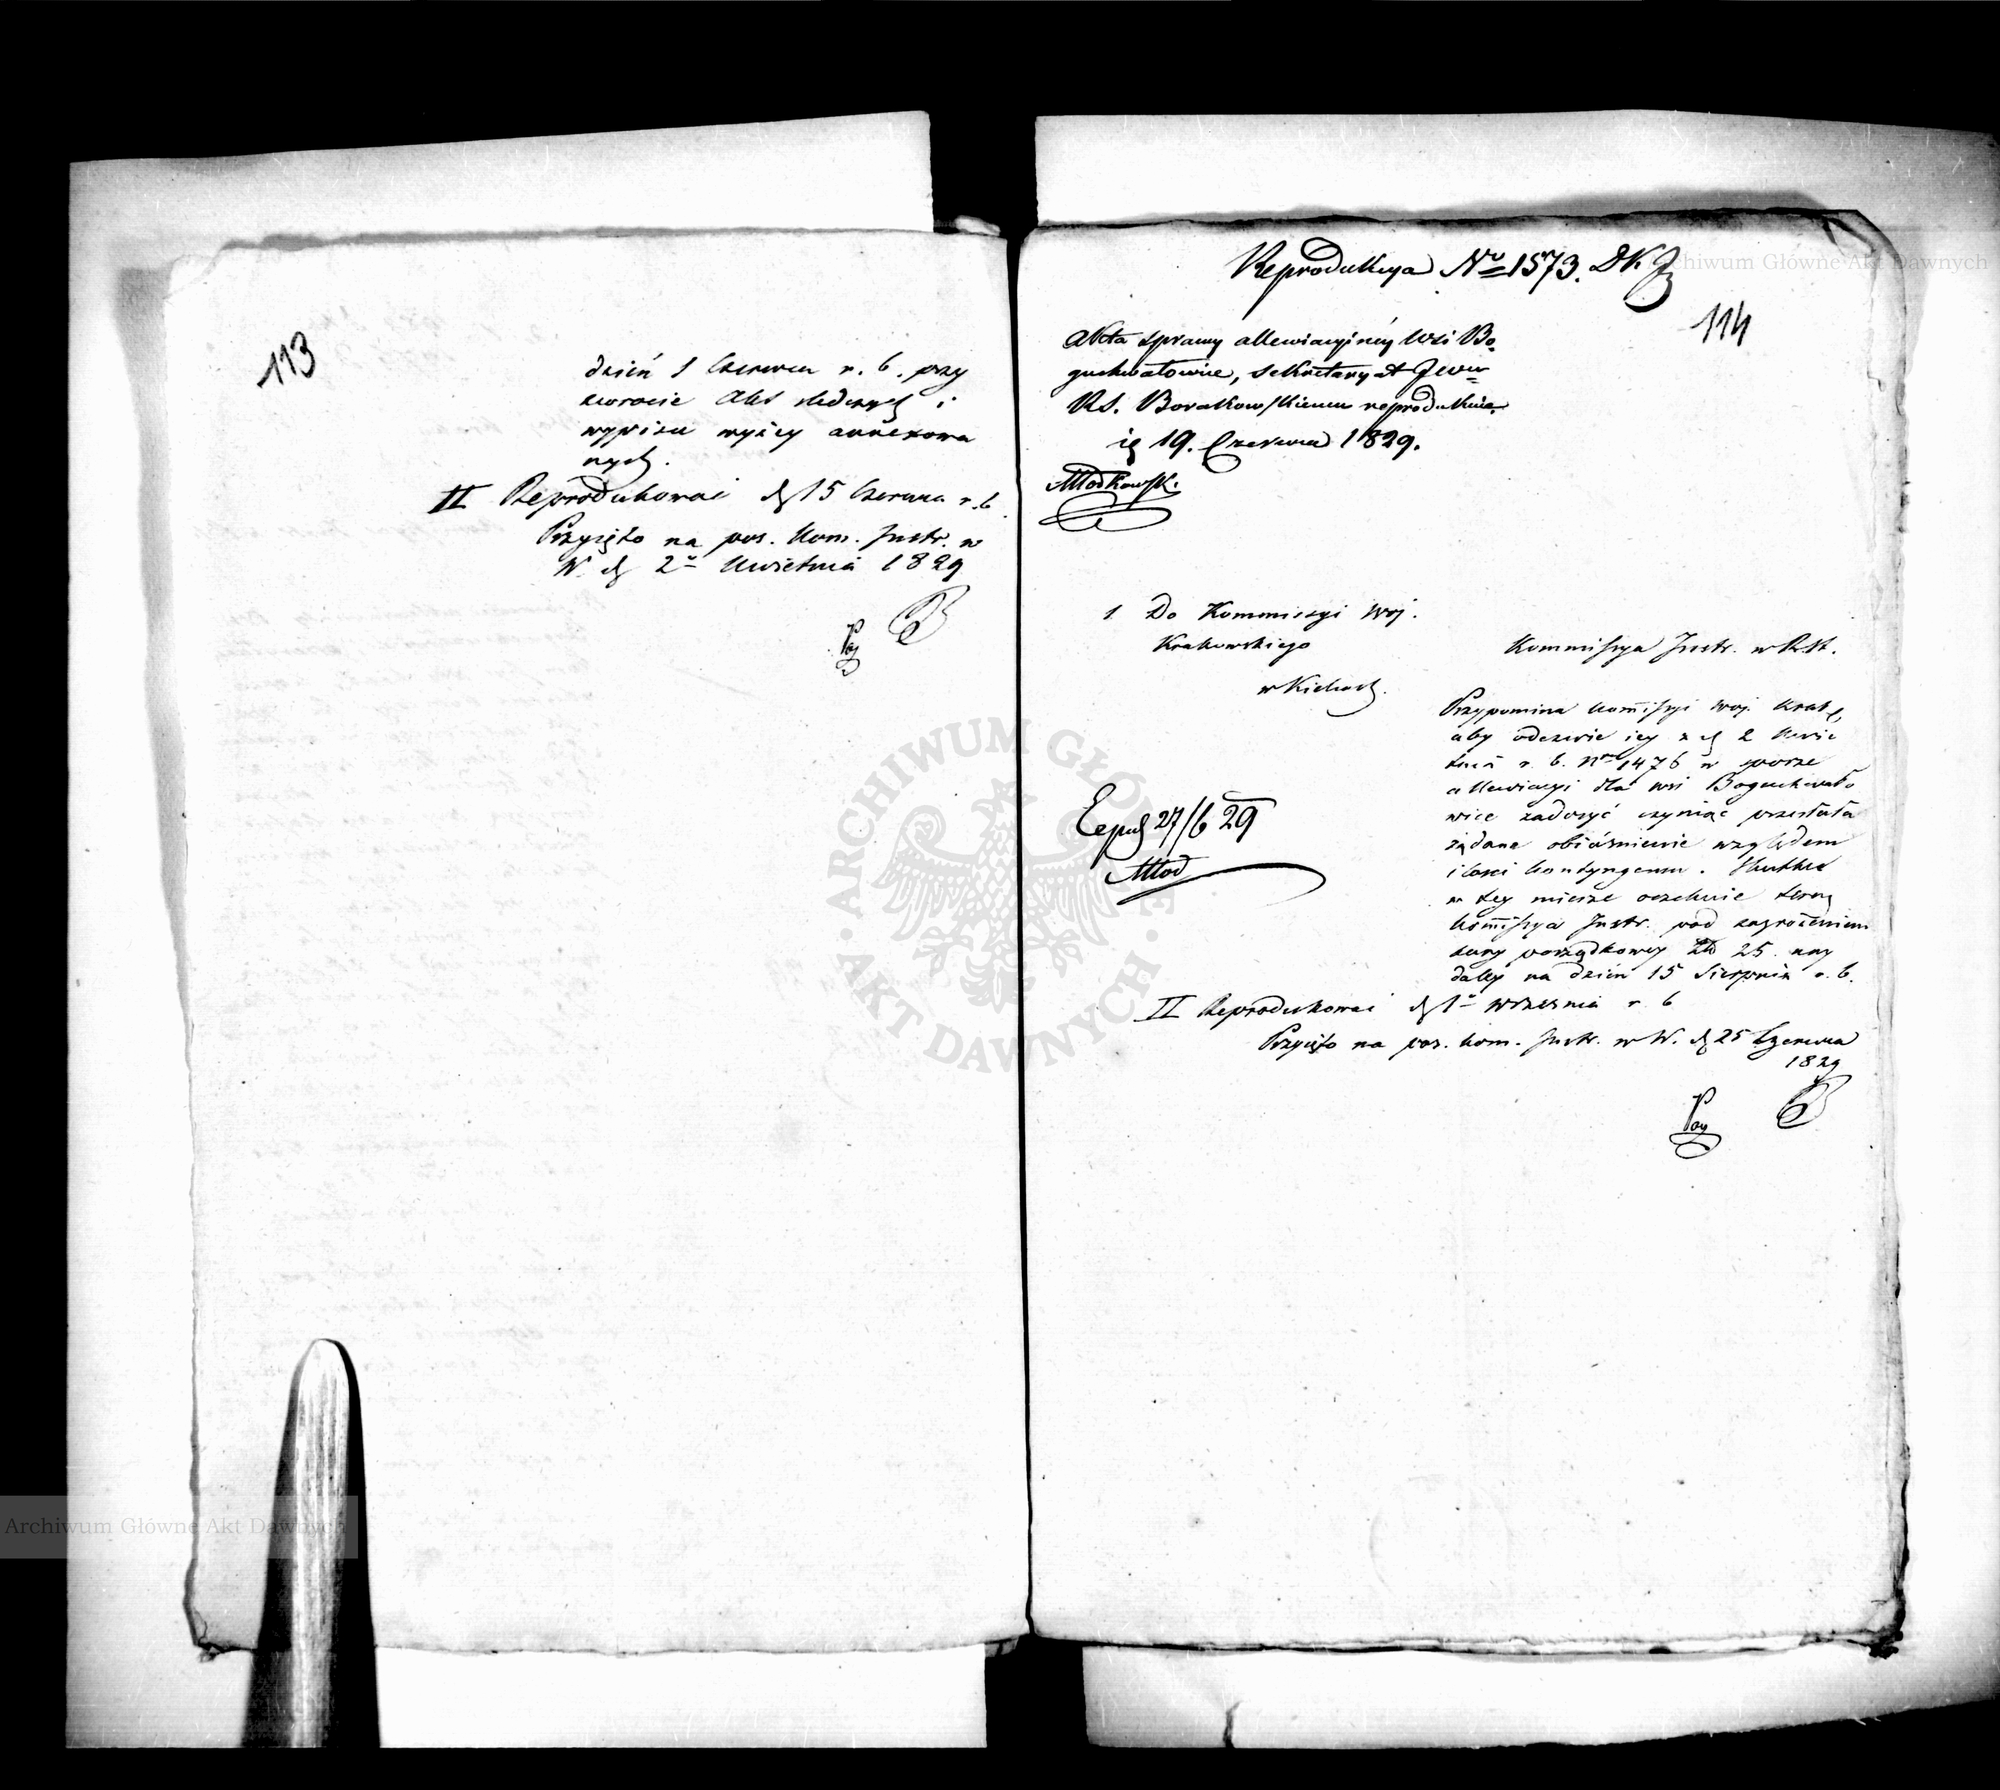 113
dzień 1 Czerwca r. b. przy
zwrocie Akt śledczych i
wypisu wyżey annexowa
nych.
II Reprodukować d. 15 Czerwca r. b.
Przyięto na pos. Kom. Instr. w
W. d. 2 Kwietnia 1829
Reprodukcya No 1573.
114
Akta sprawy allewiacyiney wsi Bo
guchwałowice, Sekretaryat Jener
RS. Borakowskiemu reprodukuie
ię 19. Czerwca 1829.
Młodkowski
1. Do Kommissyi Woj.
Krakowskiego
w Kielcach.
Kommissya Instr. w R. St.
Przypomina Kommissyi Woj. Krak.,
aby odezwie iey z d. 2 Kwie
tnia r. b. Nro 1476 w sporze
allewiacyi dla wsi Boguchwało
wice zadosyć czyniąc przesłała
żądane obiaśnienie względem
ilości kontyngensu. Skutku
w tey mierze oczekuie
Kommissya Instr. pod zagrożeniem
kary porządkowey 25. nay
daley na dzień 15 Sierpnia r. b.
II Reprodukować d. 1 Września r. b
Przyięto na pos. Kom. Instr. w W. d. 25 Czerwca
1829
Exped 27/6 29
Młod
ARCHIWUM GŁÓWNE · AKT DAWNYCH ·
Archiwum Główne Akt Dawnych
Archiwum Główne Akt Dawnych